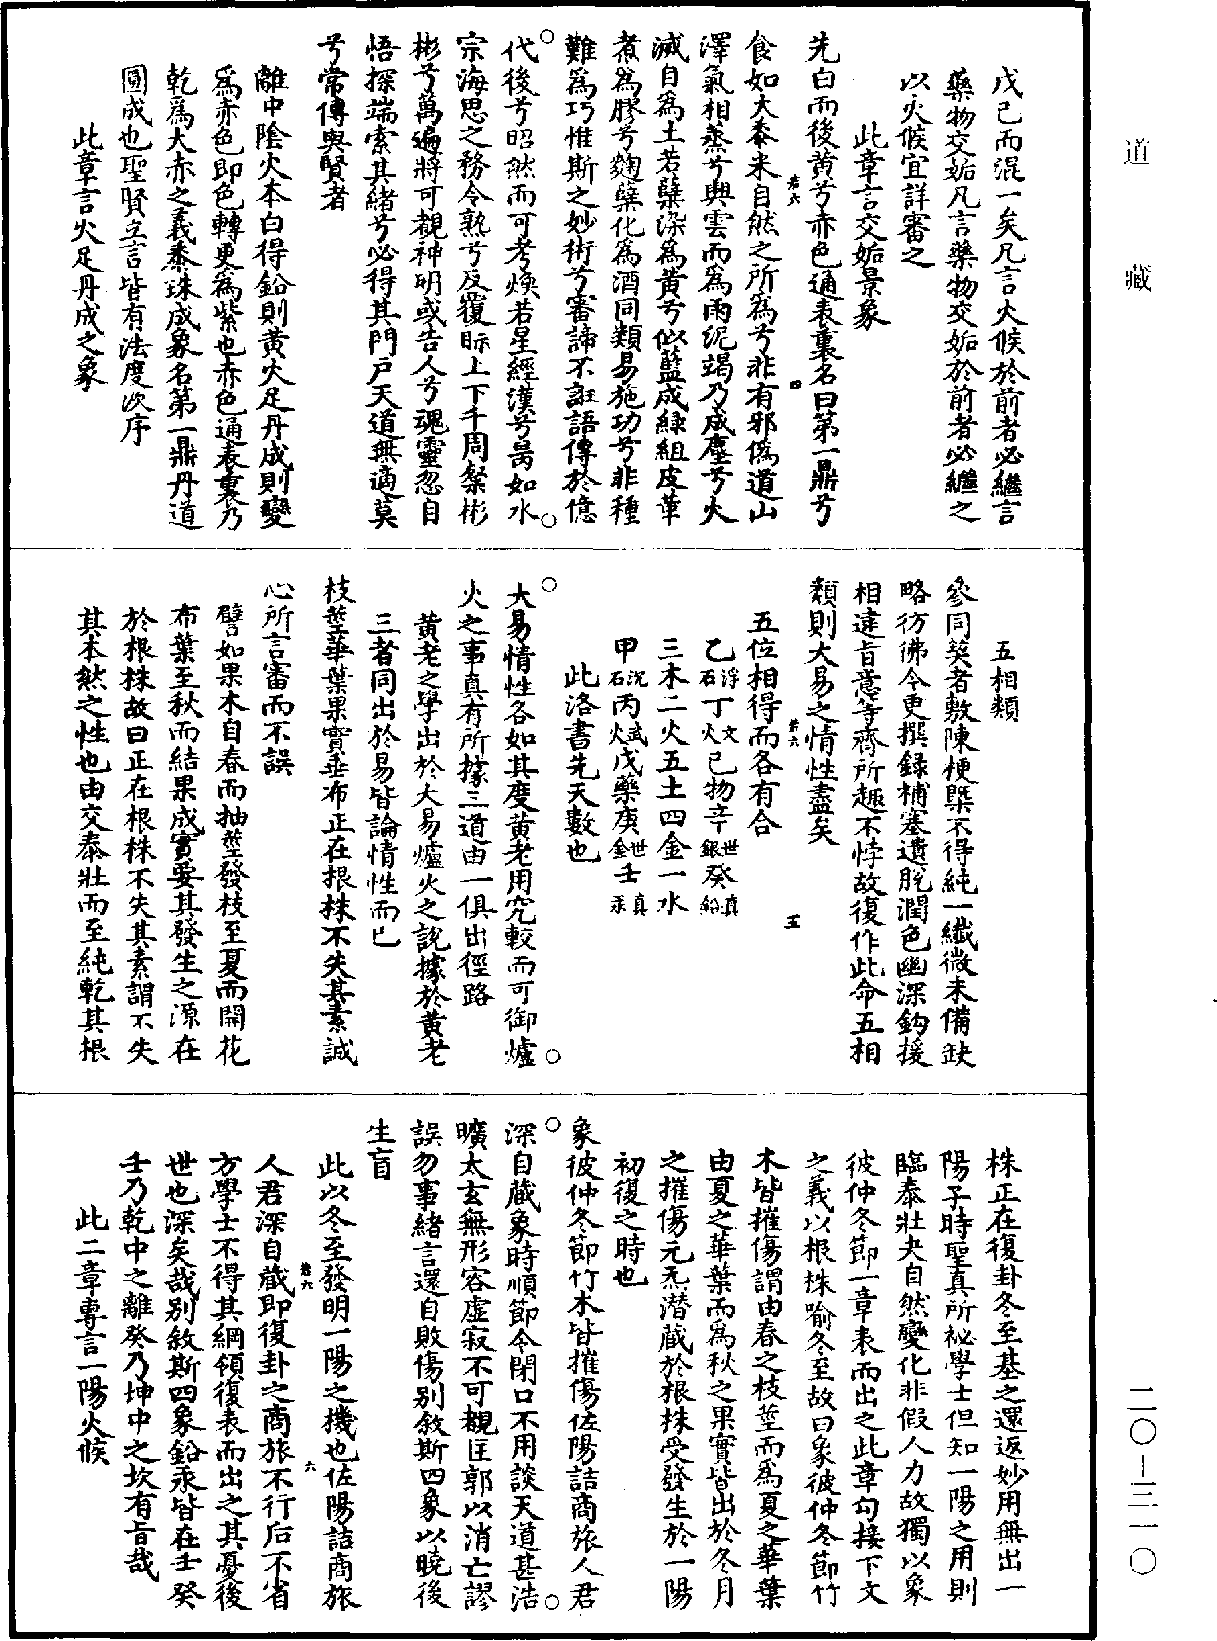 道藏
戊己而混一矣凡言火候於前者必繼言
藥物交姤凡言藥物交姤於前者必繼之
以火候宜詳審之
此章言交姤景象
先白而後黃兮赤色通表裏名曰第一鼎兮
食如大黍米自然之所為兮非有邪偽道山
澤氣相蒸兮興雲而為雨泥竭乃成塵兮火
滅自為土若蘗染為黃兮似藍成綠組皮革
煮為膠兮麴糵化為酒同類易施功兮非種
難為巧惟斯之妙術兮審諦不誑語傳於億
代後兮昭然而可考煥若星經漢兮昺如水
宗海思之務令熟兮反覆眎上下千周粲彬
彬兮萬遍將可覩神明或告人兮魂靈忽自
悟探端索其緒兮必得其門戶天道無適莫
兮常傳與賢者
離中陰火本白得鉛則黃火足丹成則變
為赤色即色轉更為紫也赤色通表裏乃
乾為大赤之義黍珠成象名第一鼎丹道
圓成也聖賢立言皆有法度次序
此章言火足丹成之象
五相類
參同契者敷陳梗槩不得純一纖微未備缺
略彷彿今更撰錄補塞遺脫潤色幽深鈎援
相逮旨意等齊所趣不悖故復作此命五相
類則大易之情性盡矣
五位相得而各有合
乙浮石丁文火己物辛世銀癸真鉛
三木二火五土四金一水
甲沉石丙武火戊藥庚世金壬真汞
此洛書先天數也
大易情性各如其度黃老用究較而可御爐
火之事真有所據三道由一俱出徑路
黃老之學出於大易爐火之說據於黃老
三者同出於易皆論情性而已
枝莖華葉果實垂布正在根株不失其素誠
心所言審而不誤
譬如果木自春而抽莖發枝至夏而開花
布葉至秋而結果成實要其發生之源在
於根株故曰正在根株不失其素謂不失
其本然之性也由交泰壯而至純乾其根
株正在復卦冬至基之還返妙用無出一
陽子時聖真所祕學士但知一陽之用則
臨泰壯夬自然變化非假人力故獨以象
彼仲冬節一章表而出之此章勾接下文
之義以根株喻冬至故曰象彼仲冬節竹
木皆摧傷謂由春之枝莖而為夏之華葉
由夏之華葉而為秋之果實皆出於冬月
之摧傷元炁潛藏於根株受發生於一陽
初復之時也
象彼仲冬節竹木皆摧傷佐陽詰商旅人君
深自藏象時順節令閉口不用談天道甚浩
曠太玄無形容虛寂不可覩匡郭以消亡謬
誤勿事緒言還自敗傷別敘斯四象以曉後
生盲
此以冬至發明一陽之機也佐陽詰商旅
人君深自藏即復卦之商旅不行后不省
方學士不得其綱領復表而出之其憂後
世也深矣哉別敘斯四象鉛汞皆在壬癸
壬乃乾中之離癸乃坤中之坎有旨哉
此二章專言一陽火候
二〇－三一〇